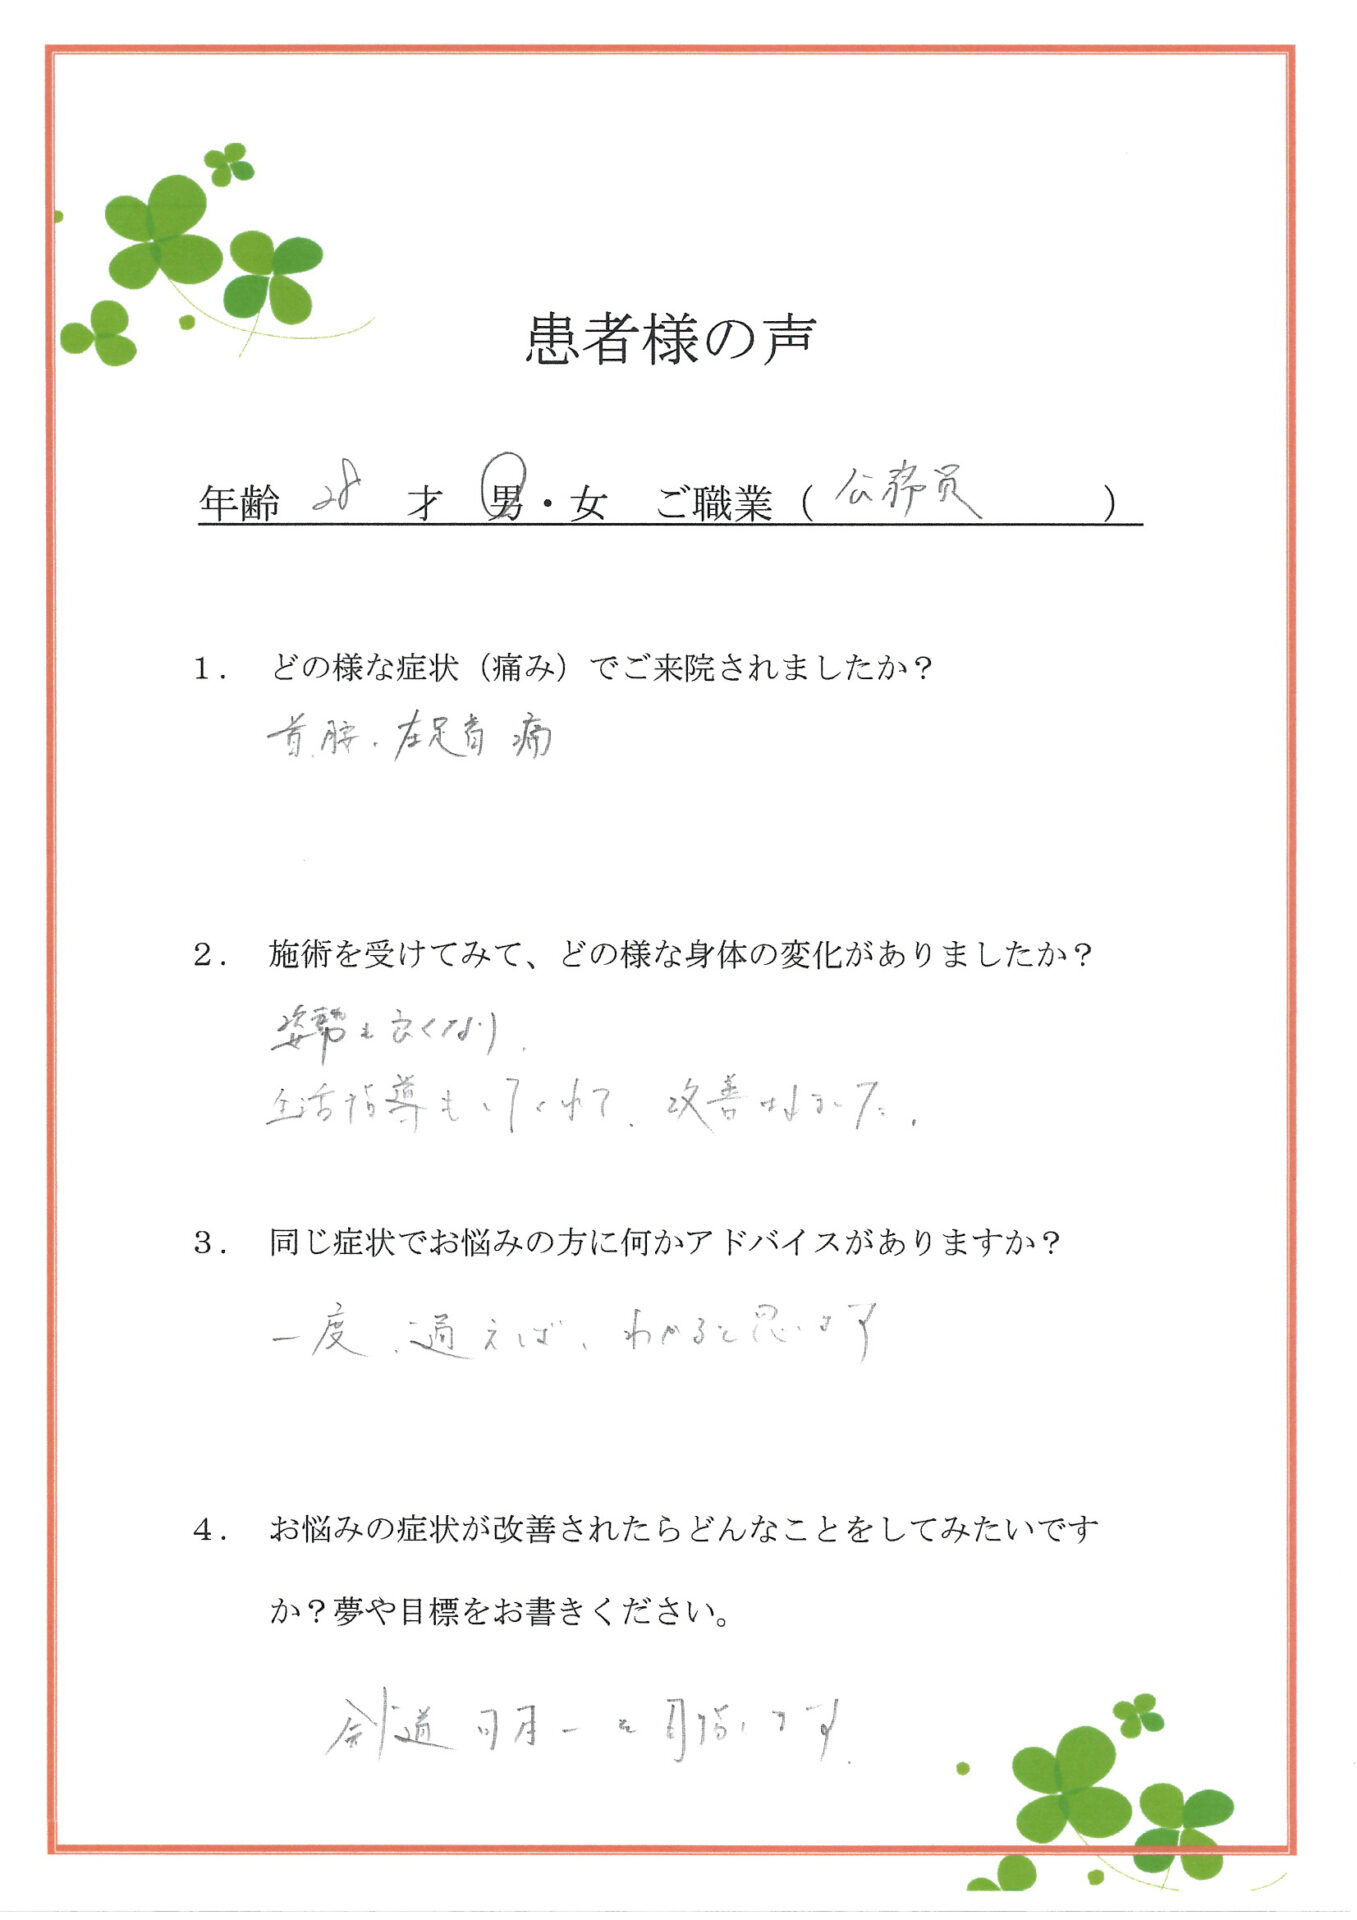 患者様の声
年齢 28 才 男・女 ご職業（ 公務員 ）
１． どの様な症状（痛み）でご来院されましたか？
首、腰、左足首 痛
２． 施術を受けてみて、どの様な身体の変化がありましたか？
姿勢も良くなり、
生活指導もしてくれて、改善
３． 同じ症状でお悩みの方に何かアドバイスがありますか？
一度、通えば、わかると思います
４． お悩みの症状が改善されたらどんなことをしてみたいです
か？夢や目標をお書きください。
剣道日本一を目指します。